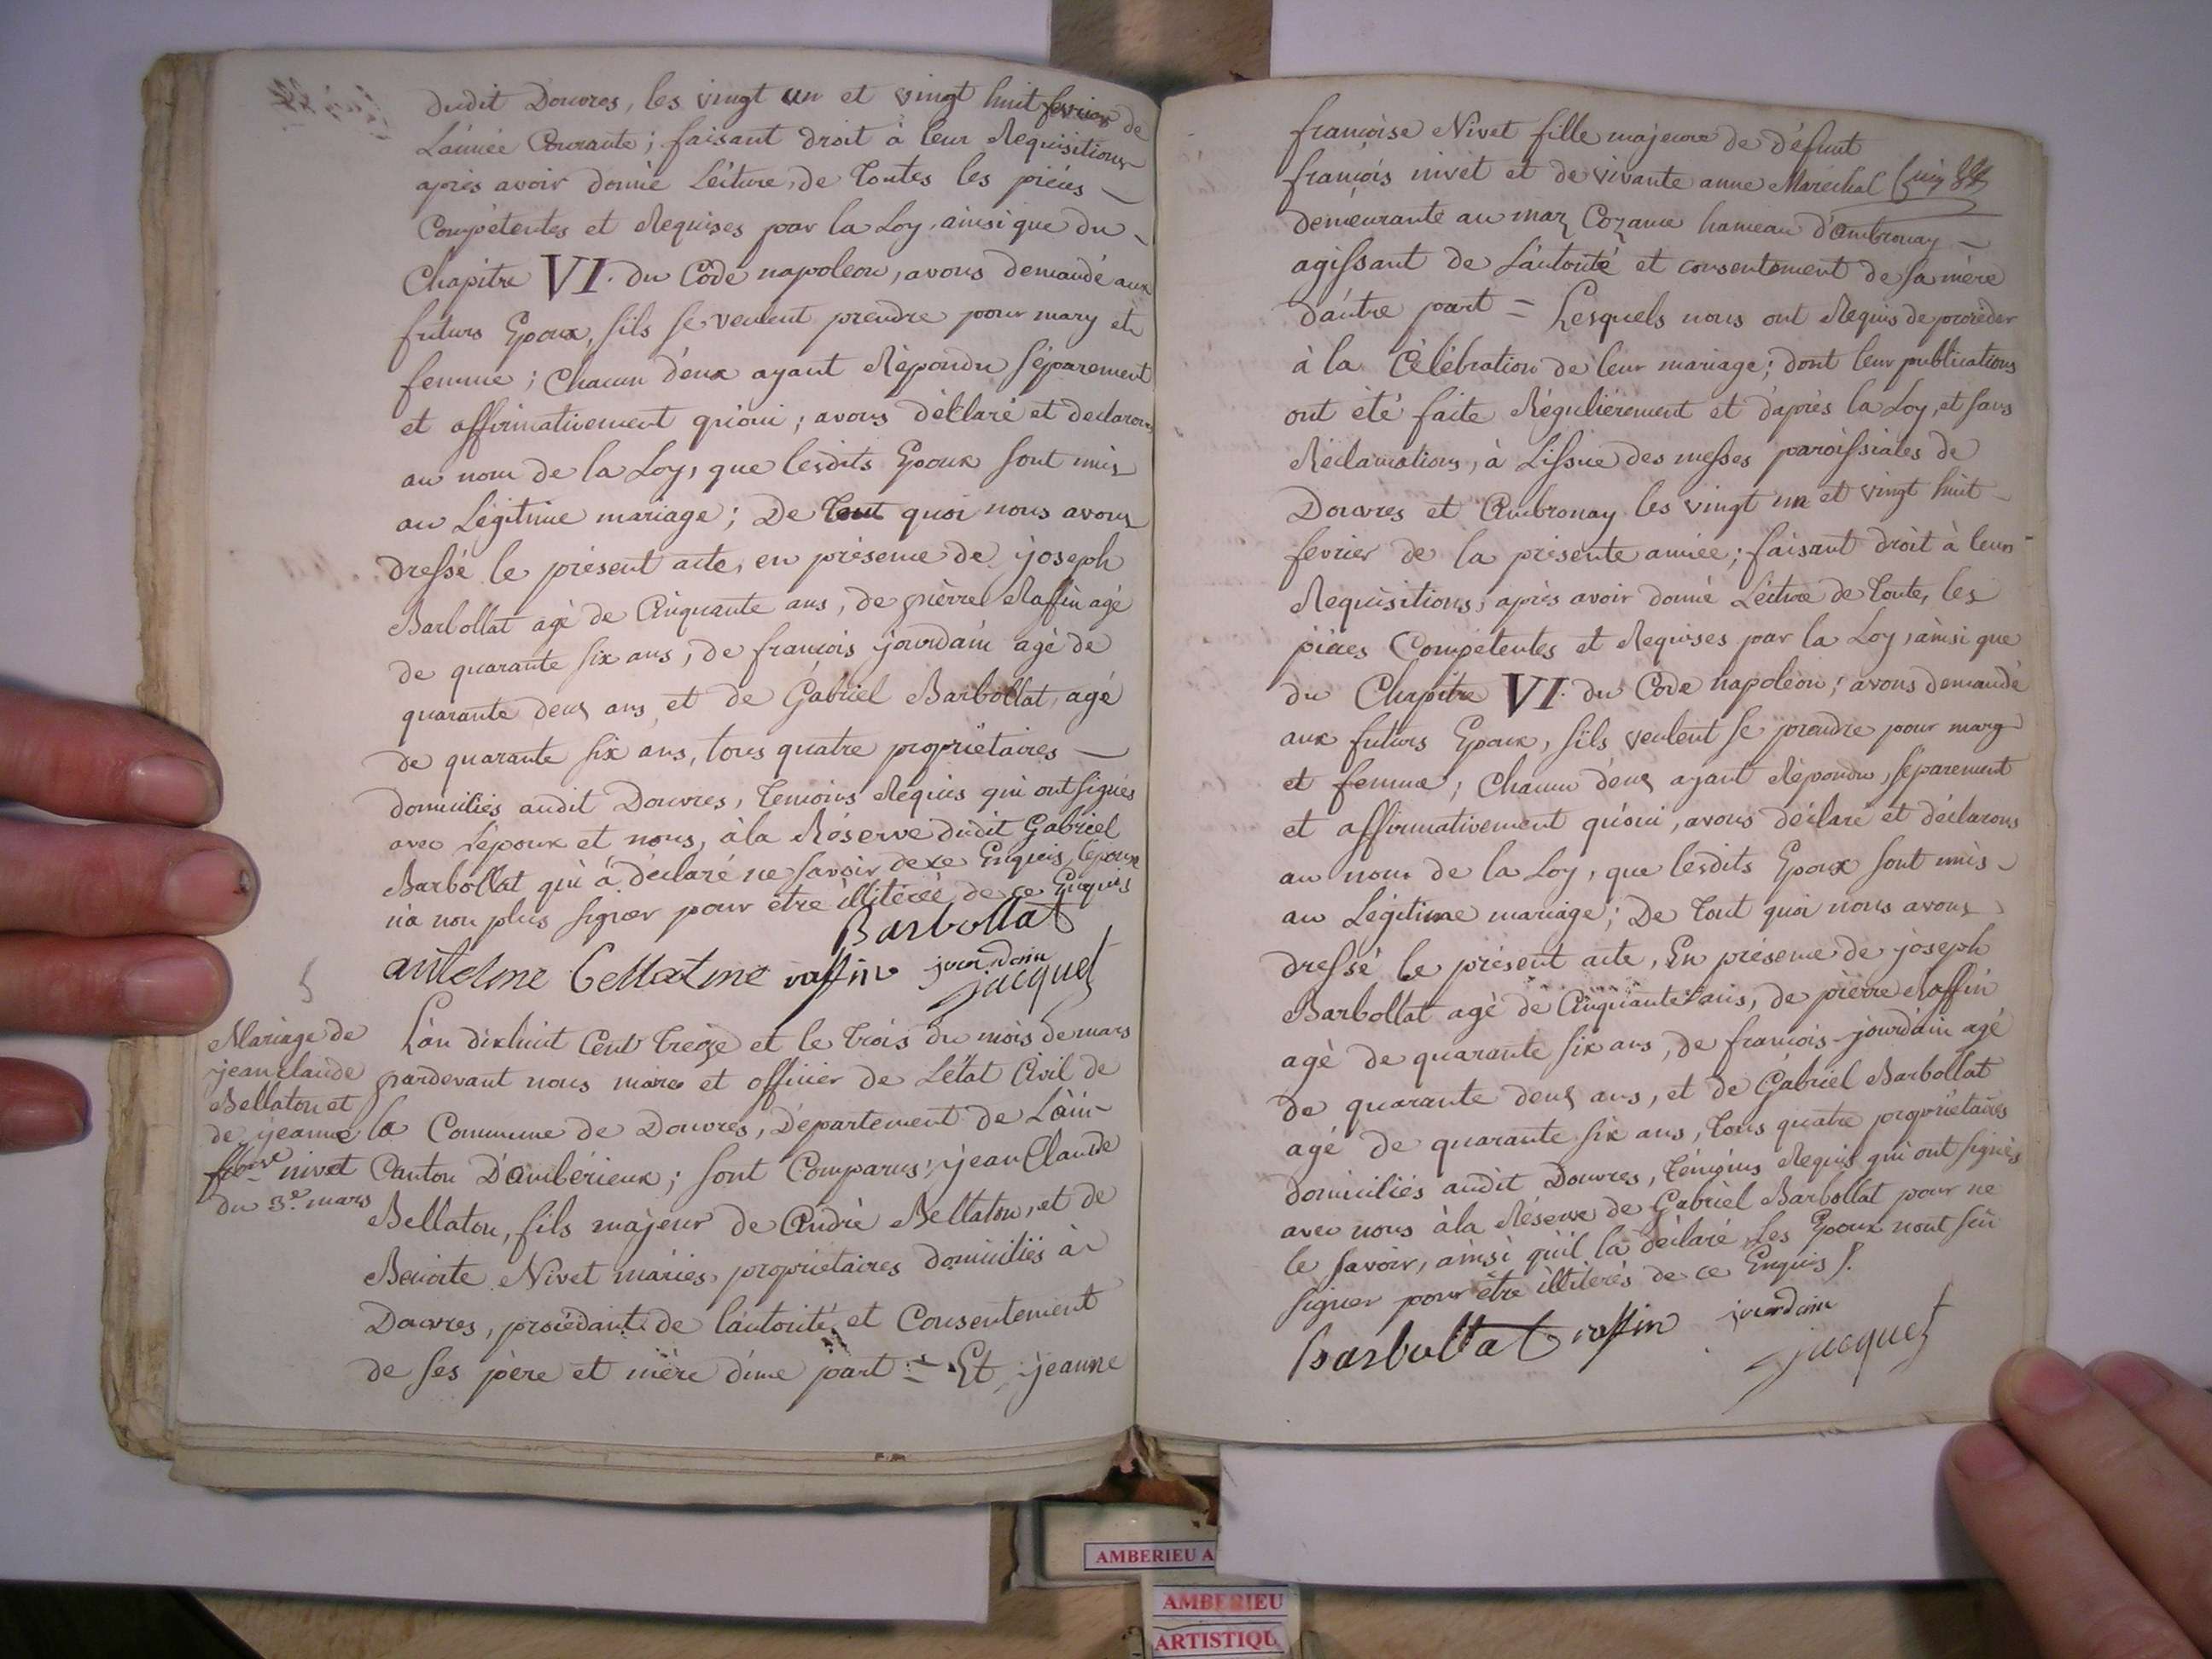 dudit Douvres, les vingt un et vingt huit fevrier de
L'année Courante; faisant droit à leur Requisitions
après avoir donné Lécture, de toutes les piéces
Compétentes et Requises par la Loy, ainsi que du
Chapitre VI. du Code napoleon, avons demandé aux
futurs Epoux, sils se veulent prendre pour mary et
femme; Chacun d'eux ayant Répondu séparement
et affirmativement qu'oui; avons déclaré et declarons
au nom de la Loy, que lesdits Epoux sont unis
au Légitime mariage; De tout quoi nous avons
dressé le présent acte, en présence de joseph
Barbollat agé de Cinquante ans, de pièrre Raffin agé
de quarante six ans, de françois jourdain agé de
quarante deux ans et de Gabriel Barbollat, agé
de quarante six ans, tous quatre propriètaires
domiciliés audit Douvres, temoins Requis qui ont signés
avec l'époux et nous, à la Réserve dudit Gabriel
Barbollat qui a déclaré ne savoir de ce Enquis, l'épouse
n'a non plus signer pour etre illitérée, de ce Enquis
Barbollat
antelme Bellatone raffin jourdain
jacquet
Mariage de
jean claude
Bellaton et
de jeanne
fse nivet
du 3e mars
L'an dixhuit Cent treize et le trois du mois de mars
pardevant nous maire et officier de L'état Civil de
la Commune de Douvres, Département de L'ain
Canton D'ambérieux; sont Comparus; jean Claude
Bellaton, fils majeur de André Bellaton, et de
Benoite Nivet mariés, propriétaires domiciliés à
Douvres, procédant de l'autorité et Consentement
de ses père et mère d'une part = Et jeanne
françoise Nivet fille majeure de défunt
françois nivet et de vivante anne Maréchal
demeurante au maz Cozance hameau d'ambronay
agissant de L'autorité et consentement de sa mère
d'autre part = Lesquels nous ont Requis de proceder
à la Célébration de leur mariage; dont leur publications
ont été faite Régulièrement et d'après la Loy, et sans
Réclamations, à Lissue des messes paroissiales de
Douvres et Ambronay les vingt un et vingt huit
fevrier de la présente année; faisant droit à leur
Requisitions, après avoir donné Lécture de toute, les
piéces Compétentes et Requises par la Loy, ainsi que
du Chapitre VI. du Code napoléon; avons demandé
aux futurs Epoux, sils veulent se prendre pour mary
et femme; Chacun d'eux ayant Répondu, séparement
et affirmativement qu'oui, avons déclaré et déclarons
au nom de la Loy, que lesdits Epoux sont unis
au Légitime mariage; De tout quoi nous avons
dressé le présent acte, En présence de joseph
Barbollat agé de Cinquante ans, de pièrre Raffin
agé de quarante six ans, de françois jourdain agé
de quarante deux ans, et de Gabriel Barbollat
agé de quarante six ans, tous quatre propriètaires
domiciliés audit Douvres, témoins Requis qui ont signés
avec nous à la Réserve de Gabriel Barbollat pour ne
le savoir, ainsi qu'il la déclaré, les Epoux n'ont seu
signer pour être illiterés de ce Enquis
barbollat raffin jourdain
jacquet
AMBERIEU A
AMBERIEU
ARTISTIQU